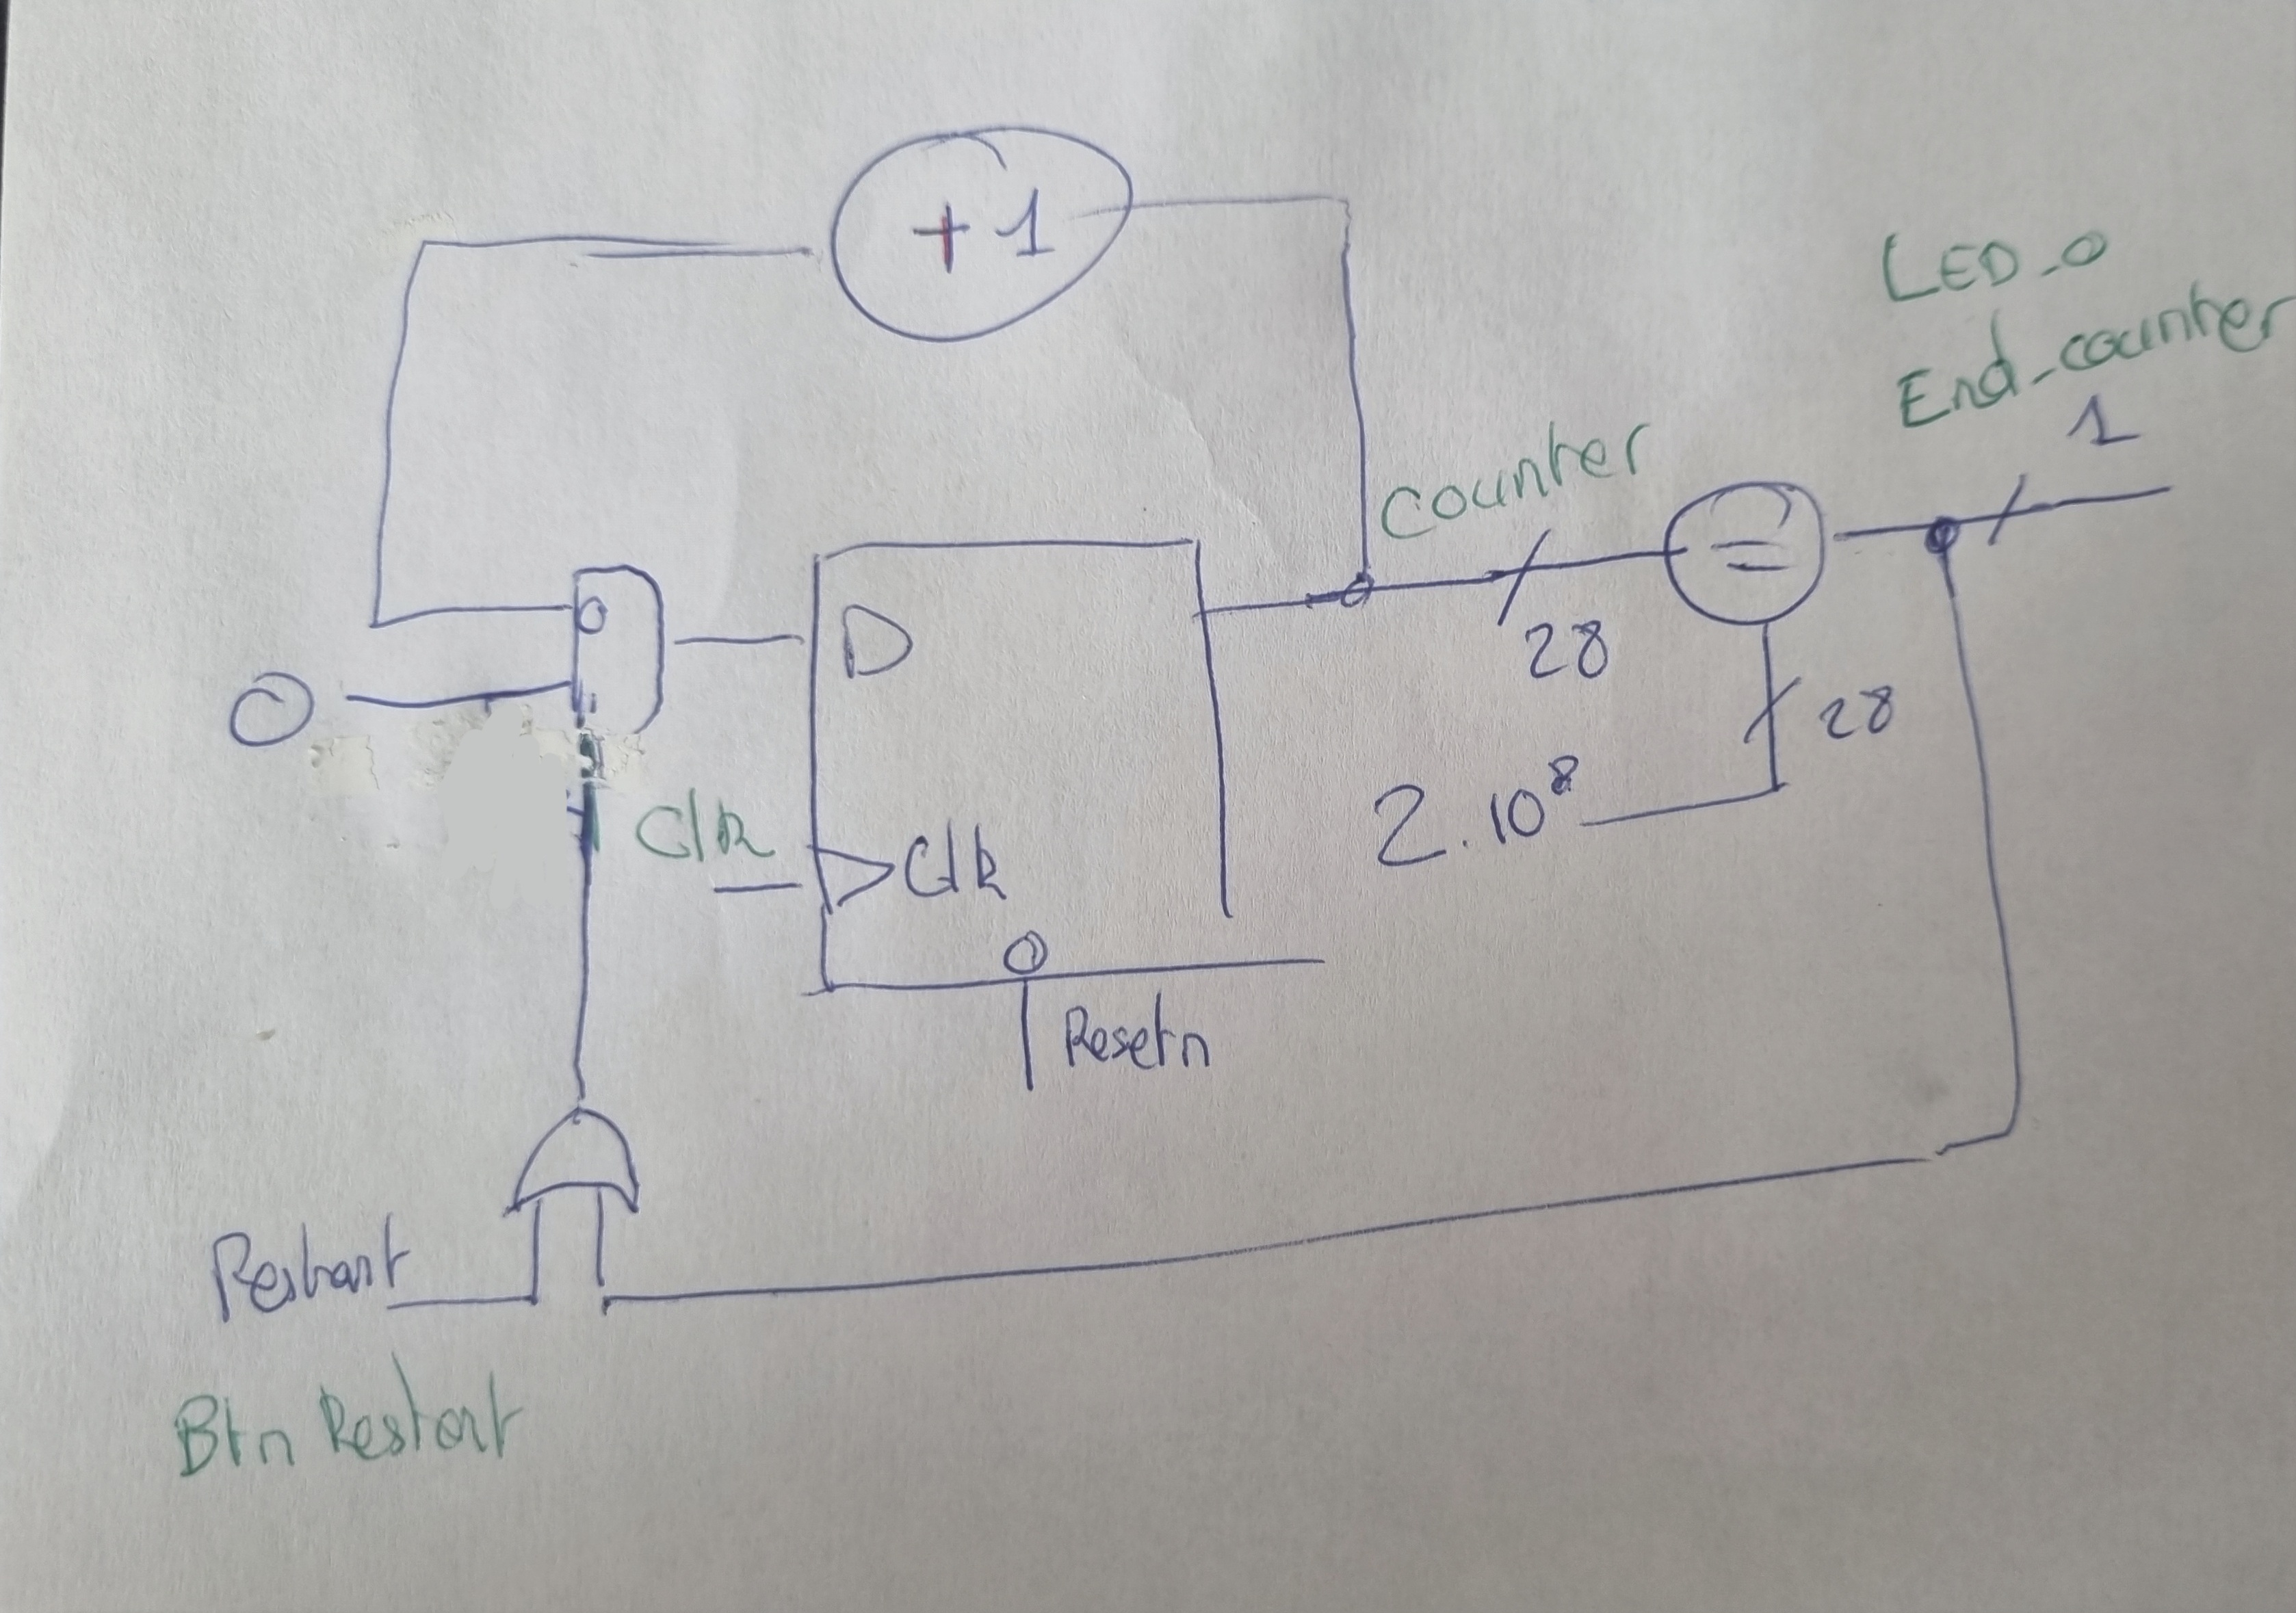 +1
LED_0
End_counter
1
Counter
=
28
28
2.10⁸
0
0
D
Clk
Clk
Resetn
Restart
Btn Restart